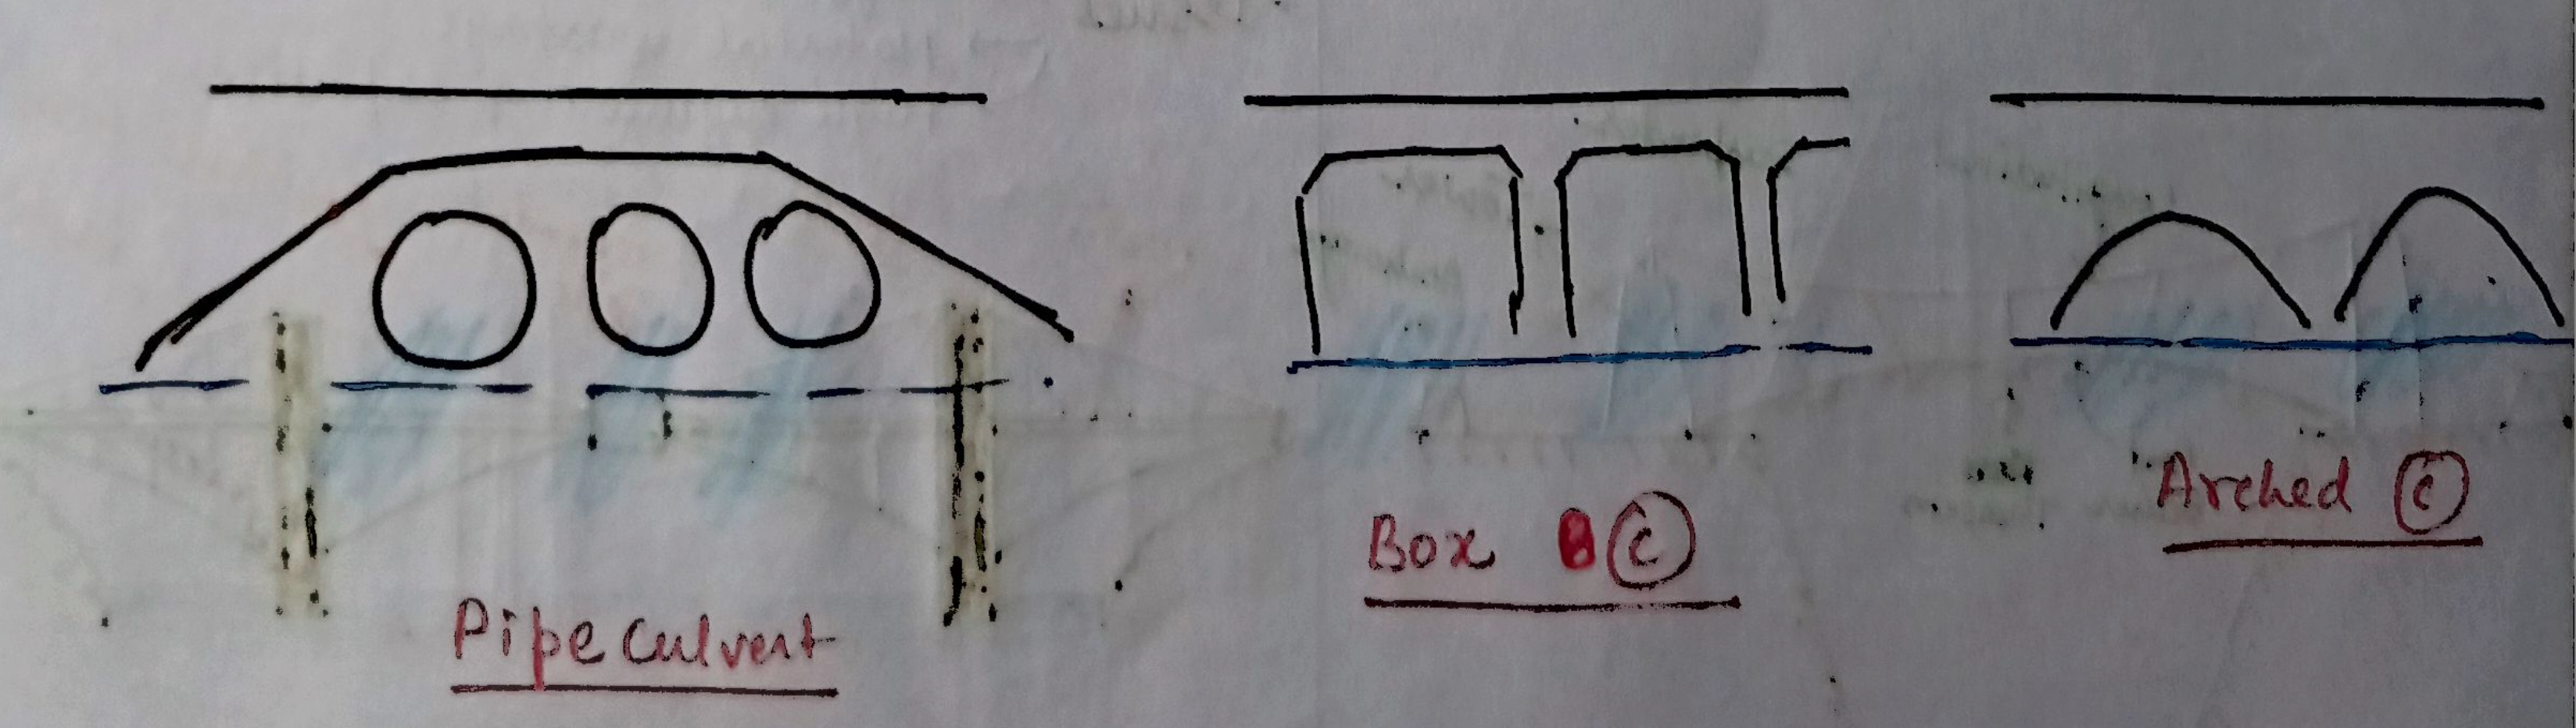 Pipe culvert
Box C
Arched C